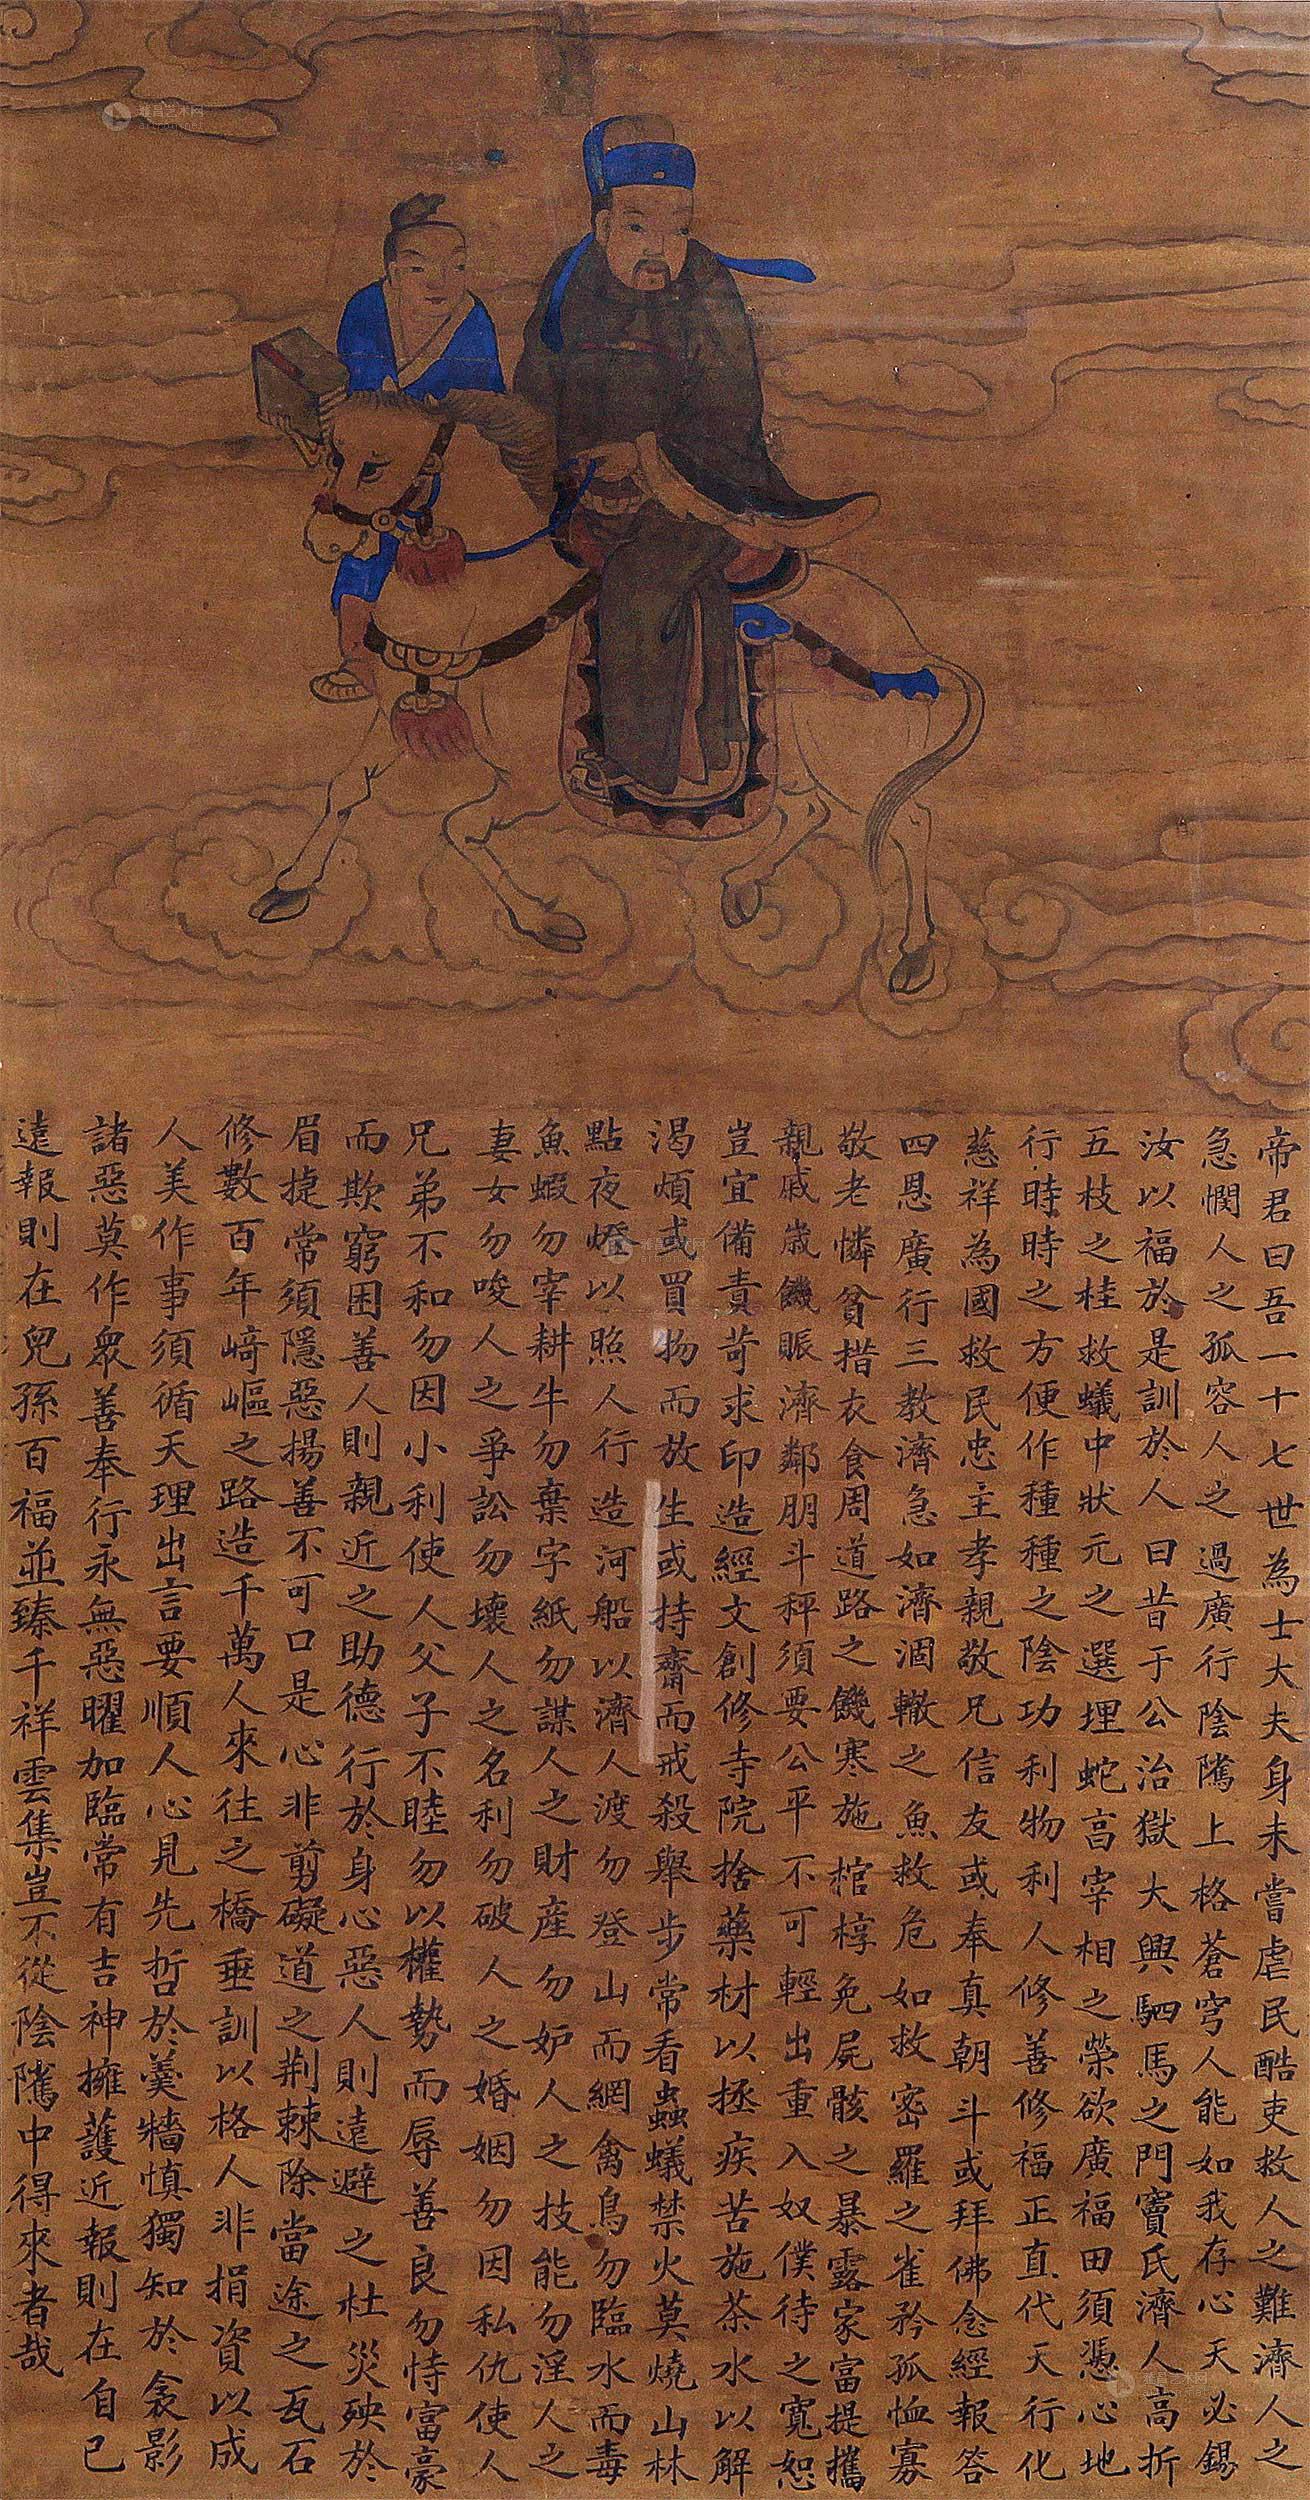 帝君曰吾一十七世為士大夫身未嘗虐民酷吏救人之難濟人之
急憫人之孤容人之過廣行陰騭上格蒼穹人能如我存心天必錫
汝以福於是訓於人曰昔于公治獄大興駟馬之門竇氏濟人高折
五枝之桂救蟻中狀元之選埋蛇亯宰相之榮欲廣福田須憑心地
行時時之方便作種種之陰功利物利人修善修福正直代天行化
慈祥為國救民忠主孝親敬兄信友或奉真朝斗或拜佛念經報答
四恩廣行三教濟急如濟涸轍之魚救危如救密羅之雀矜孤恤寡
敬老憐貧措衣食周道路之饑寒施棺槨免屍骸之暴露家富提攜
親戚歲饑賑濟鄰朋斗秤須要公平不可輕出重入奴僕待之寬恕
豈宜備責苛求印造經文創修寺院捨藥材以拯疾苦施茶水以解
渴煩或買物而放生或持齋而戒殺舉步常看蟲蟻禁火莫燒山林
點夜燈以照人行造河船以濟人渡勿登山而網禽鳥勿臨水而毒
魚蝦勿宰耕牛勿棄字紙勿謀人之財產勿妒人之技能勿淫人之
妻女勿唆人之爭訟勿壞人之名利勿破人之婚姻勿因私仇使人
兄弟不和勿因小利使人父子不睦勿以權勢而辱善良勿恃富豪
而欺窮困善人則親近之助德行於身心惡人則遠避之杜災殃於
眉捷常須隱惡揚善不可口是心非剪礙道之荊棘除當途之瓦石
修數百年崎嶇之路造千萬人來往之橋垂訓以格人非捐資以成
人美作事須循天理出言要順人心見先哲於羹牆慎獨知於衾影
諸惡莫作眾善奉行永無惡曜加臨常有吉神擁護近報則在自己
遠報則在兒孫百福並臻千祥雲集豈不從陰騭中得來者哉
雅昌艺术网